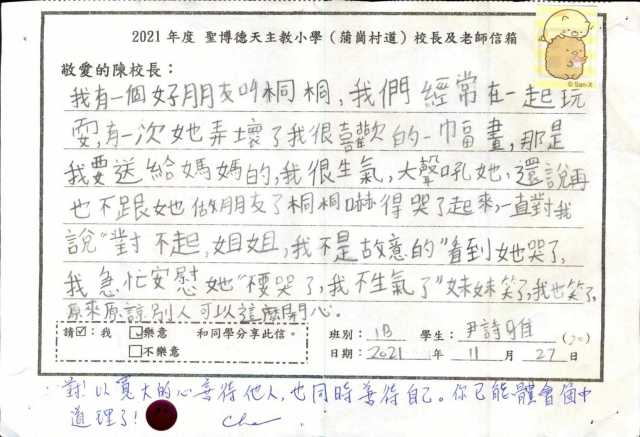 2021 年度 聖博德天主教小學（蒲崗村道）校長及老師信箱
© San-X
敬愛的陳校長：
我有一個好朋友叫桐桐，我們經常在一起玩
耍，有一次她弄壞了我很喜歡的一幅畫，那是
我要送給媽媽的，我很生氣，大聲吼她，還說再
也不跟她做朋友了桐桐嚇得哭了起來，一直對我
說“對不起，姐姐，我不是故意的”看到她哭了，
我急忙安慰她“不要哭了，我不生氣了”妹妹笑了，我也笑了，
原來原諒別人可以這麼開心。
請☑：我 ☑樂意 和同學分享此信。
□不樂意
班別： 1B 學生： 尹詩雅 (20)
日期： 2021 年 11 月 27 日
對！以寬大的心善待他人，也同時善待自己。你已能體會箇中
道理了！